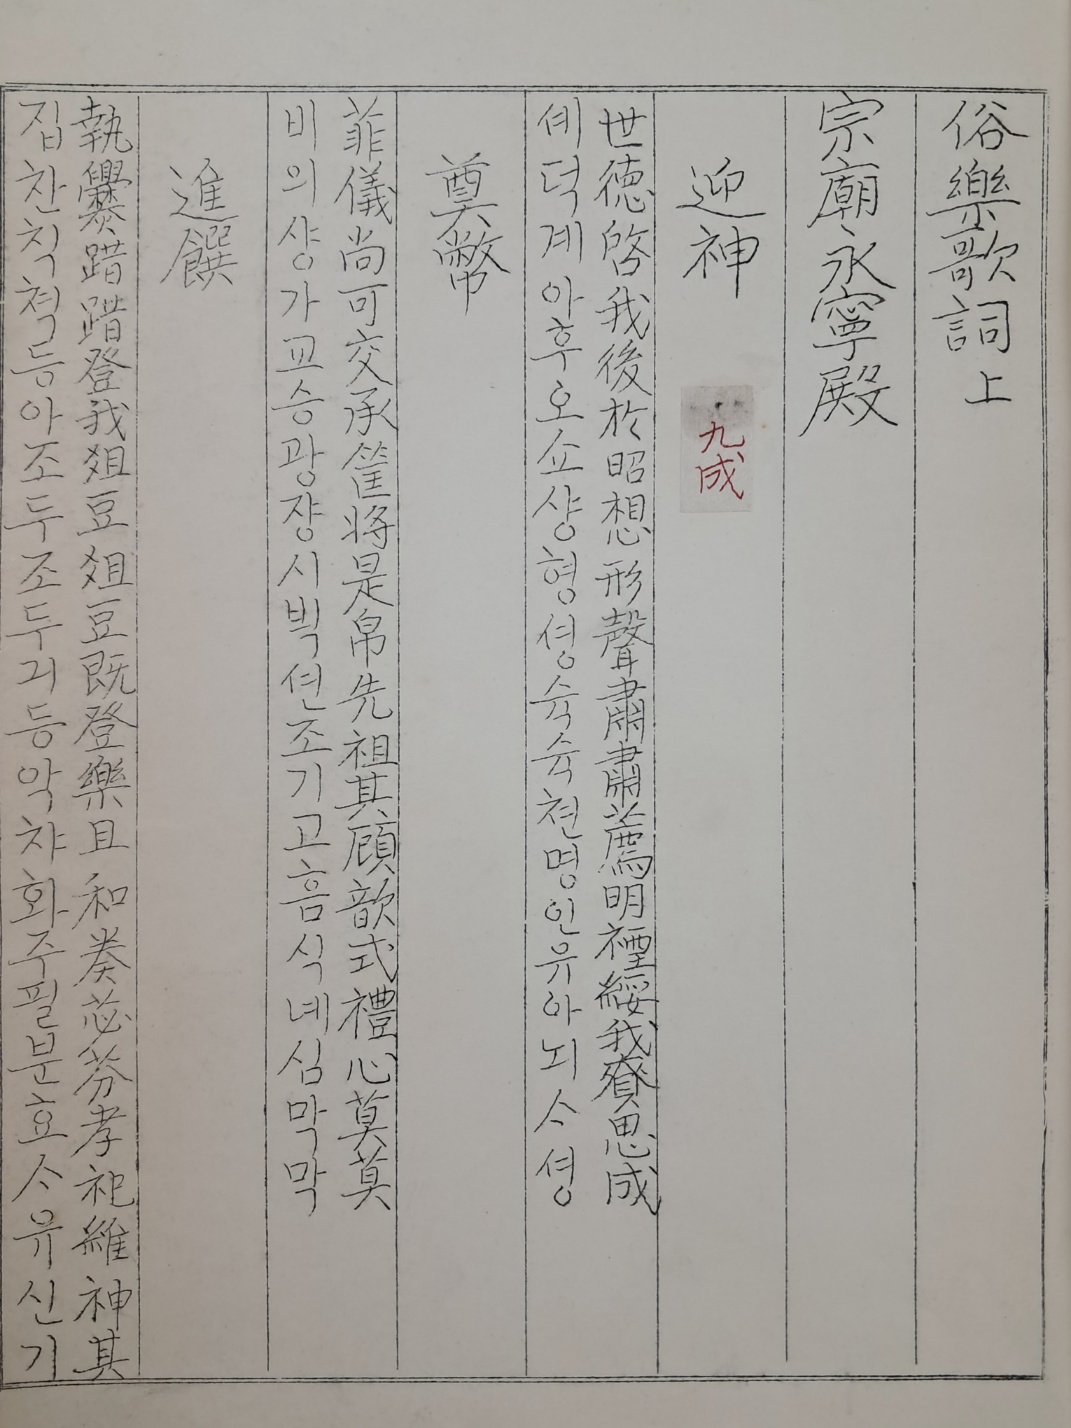 俗樂歌詞上
宗廟永寧殿
迎神
九成
世德啓我後於昭想形聲肅肅薦明禋綏我賚思成
셰덕계아후오쇼샹형셩슉슉쳔명인유아뢰ᄉ셩
奠幣
菲儀尚可交承筐將是帛先祖其顧歆式禮心莫莫
비의샹가교승광쟝시빅션조기고흠식녜심막막
進饌
執爨踖踖登我俎豆俎豆既登樂且和奏苾芬孝祀維神其
집찬칙쳑등아조두조두긔등악챠화주필분효ᄉ유신기